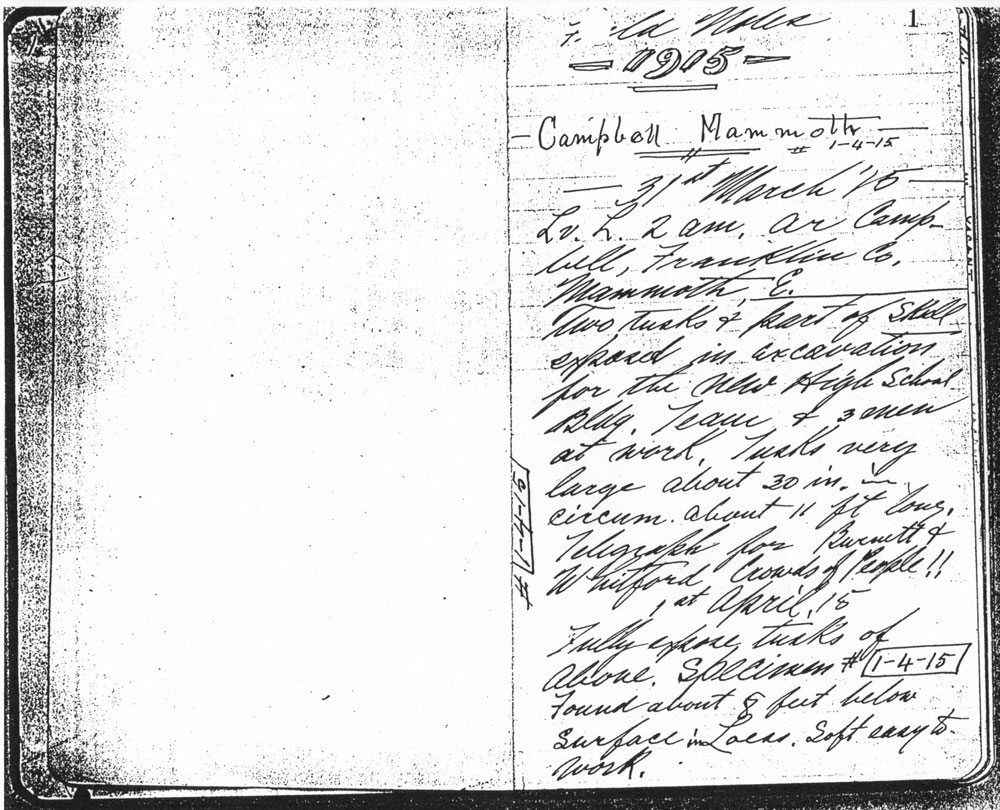 1
Field Notes
— 1915 —
— Campbell Mammoth —
# 1-4-15
— 31st March '15 —
Lv. L. 2 am, ar Camp-
bell, Franklin Co.
Mammoth, E.
Two tusks & part of Skull
exposed in excavation
for the New High School
Bldg. Team & 3 men
at work. Tusks very
large about 30 in. in
circum. about 11 ft long.
Telegraph for Burnett &
Whitford. Crowds of People!!
1st April, 15
Fully expose tusks of
above. Specimen # 1-4-15
Found about 8 feet below
surface in Loess. Soft easy to
work.
# 1-4-15